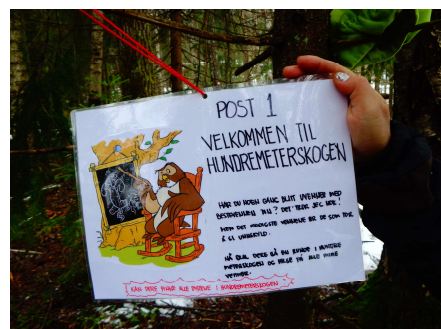 POST 1
VELKOMMEN TIL
HUNDREMETERSKOGEN
HAR DU NOEN GANG BLITT UVENNER MED
BESTEVENNEN DIN? DET TROR JEG IKKE!
MEN DET VIKTIGSTE VENNENE ER DE SOM TØR
Å SI UNNSKYLD.
NÅ SKAL DERE GÅ EN RUNDE I HUNDRE
METERSKOGEN OG HILSE PÅ ALLE MINE
VENNER.
KAN DERE FINNE ALLE POSTENE I HUNDREMETERSKOGEN